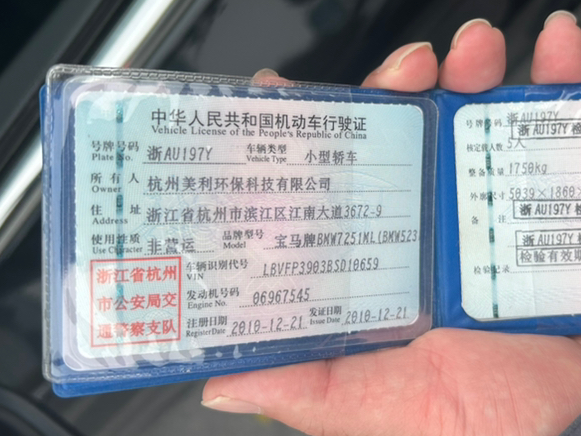 中华人民共和国机动车行驶证
Vehicle License of the People's Republic of China
号牌号码 浙AU197Y 车辆类型 小型轿车
Plate No. Vehicle Type
所有人 杭州美利环保科技有限公司
Owner
住址 浙江省杭州市滨江区江南大道3672-9
Address
使用性质 非营运 品牌型号 宝马牌BMW7251ML(BMW523
Use Character Model
车辆识别代号 LBVFP3903BSD10659
VIN
发动机号码 06967545
Engine No.
注册日期 2010-12-21 发证日期 2010-12-21
Register Date Issue Date
浙江省杭州
市公安局交
通警察支队
号牌号码 浙AU197Y
浙AU197Y 检
核定载人数 5人
整备质量 1750kg
外廓尺寸 5039×1860
备注 浙AU197Y 检
浙AU197Y 检
检验有效期
检验记录